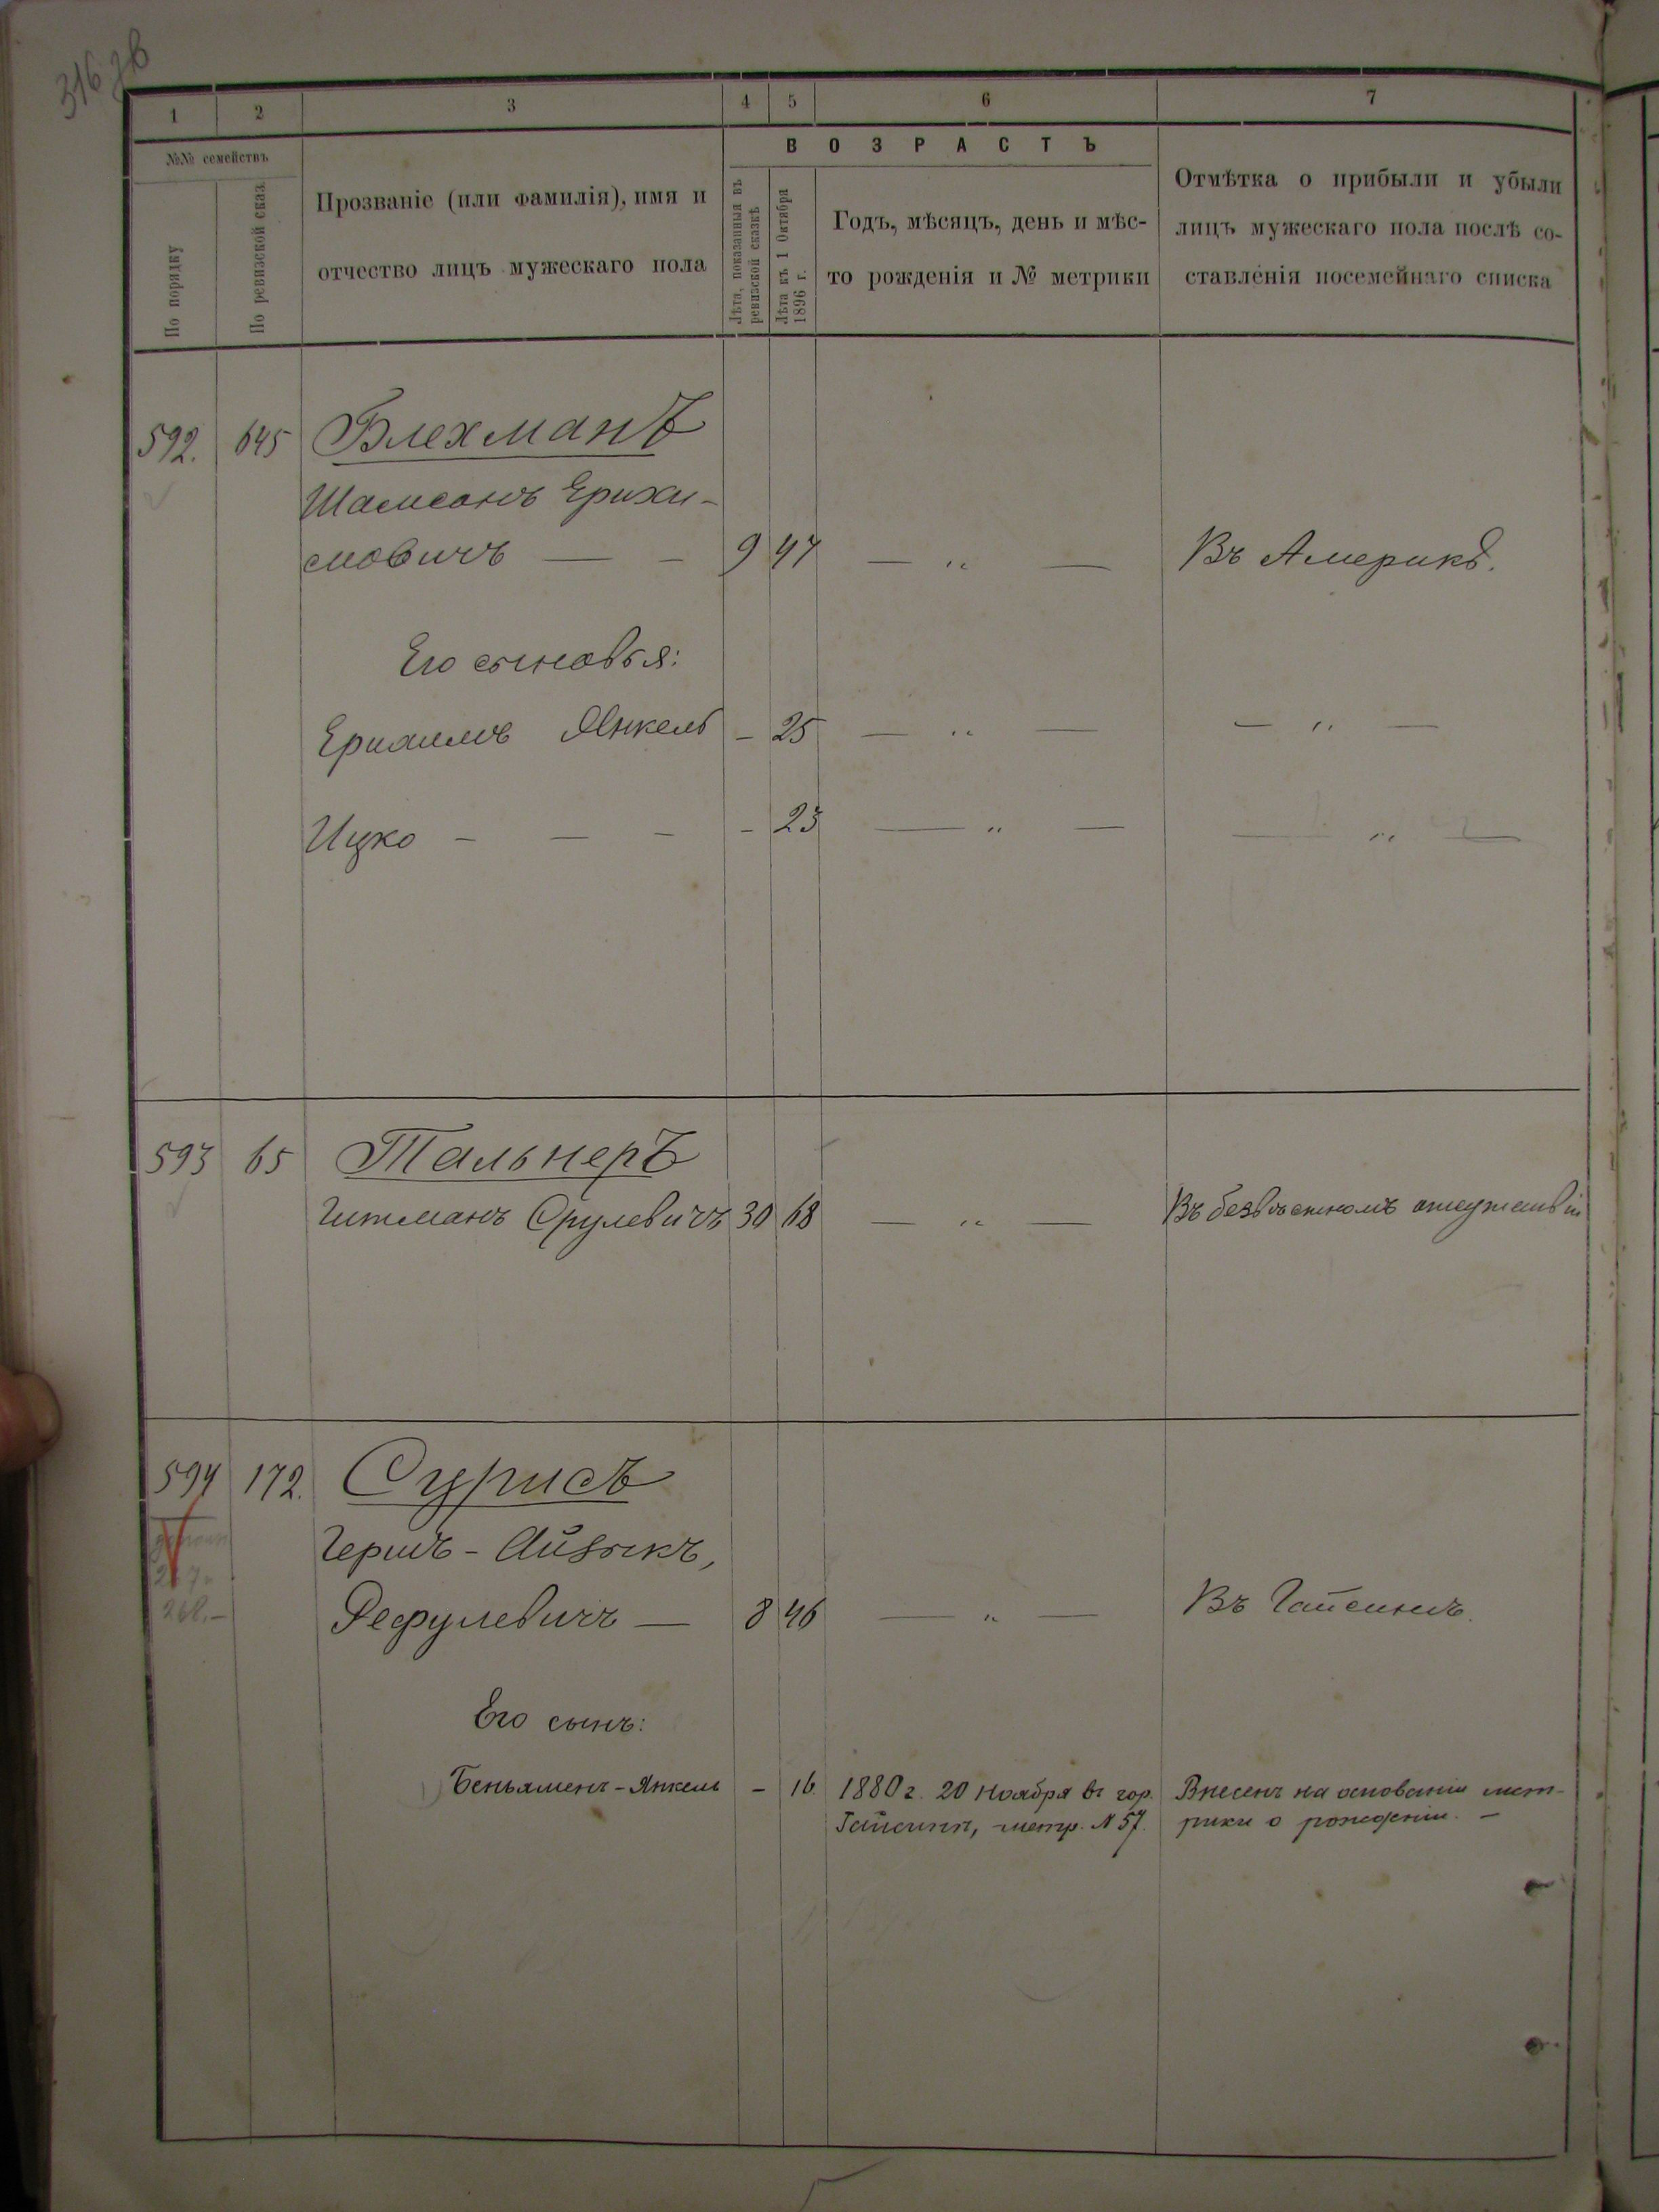 316 зв
1 2 3 4 5 6 7
№№ семействъ
По порядку
По ревизской сказ.
Прозваніе (или фамилія), имя и
отчество лицъ мужескаго пола
ВОЗРАСТЪ
Лѣта, показанныя въ
ревизской сказкѣ
Лѣта къ 1 Октября
1896 г.
Годъ, мѣсяцъ, день и мѣс-
то рожденія и № метрики
Отмѣтка о прибыли и убыли
лицъ мужескаго пола послѣ со-
ставленія посемейнаго списка
592. 645 Блехманъ
Шамсонъ Ерихи-
мовичъ — - 9 47 — „ — Въ Америкѣ.
Его сыновья:
Янкель - 25 — „ — — „ —
Ицко - — - - 23 — „ — — „ —
593 65 Тальнеръ
Гитманъ Срулевичъ 30 68 — „ — Въ безвѣстномъ отсутствіи
594 172. Сурисъ
Гершъ-Айзыкъ,
Рефулевичъ — 8 46 — „ — Въ Гайсинѣ.
268.-
Его сынъ:
Беньяменъ-Янкель - 16. 1880 г. 20 Ноября въ гор. Внесенъ на основаніи мет-
Гайсинѣ, метр. № 57. рики о рожденіи. —